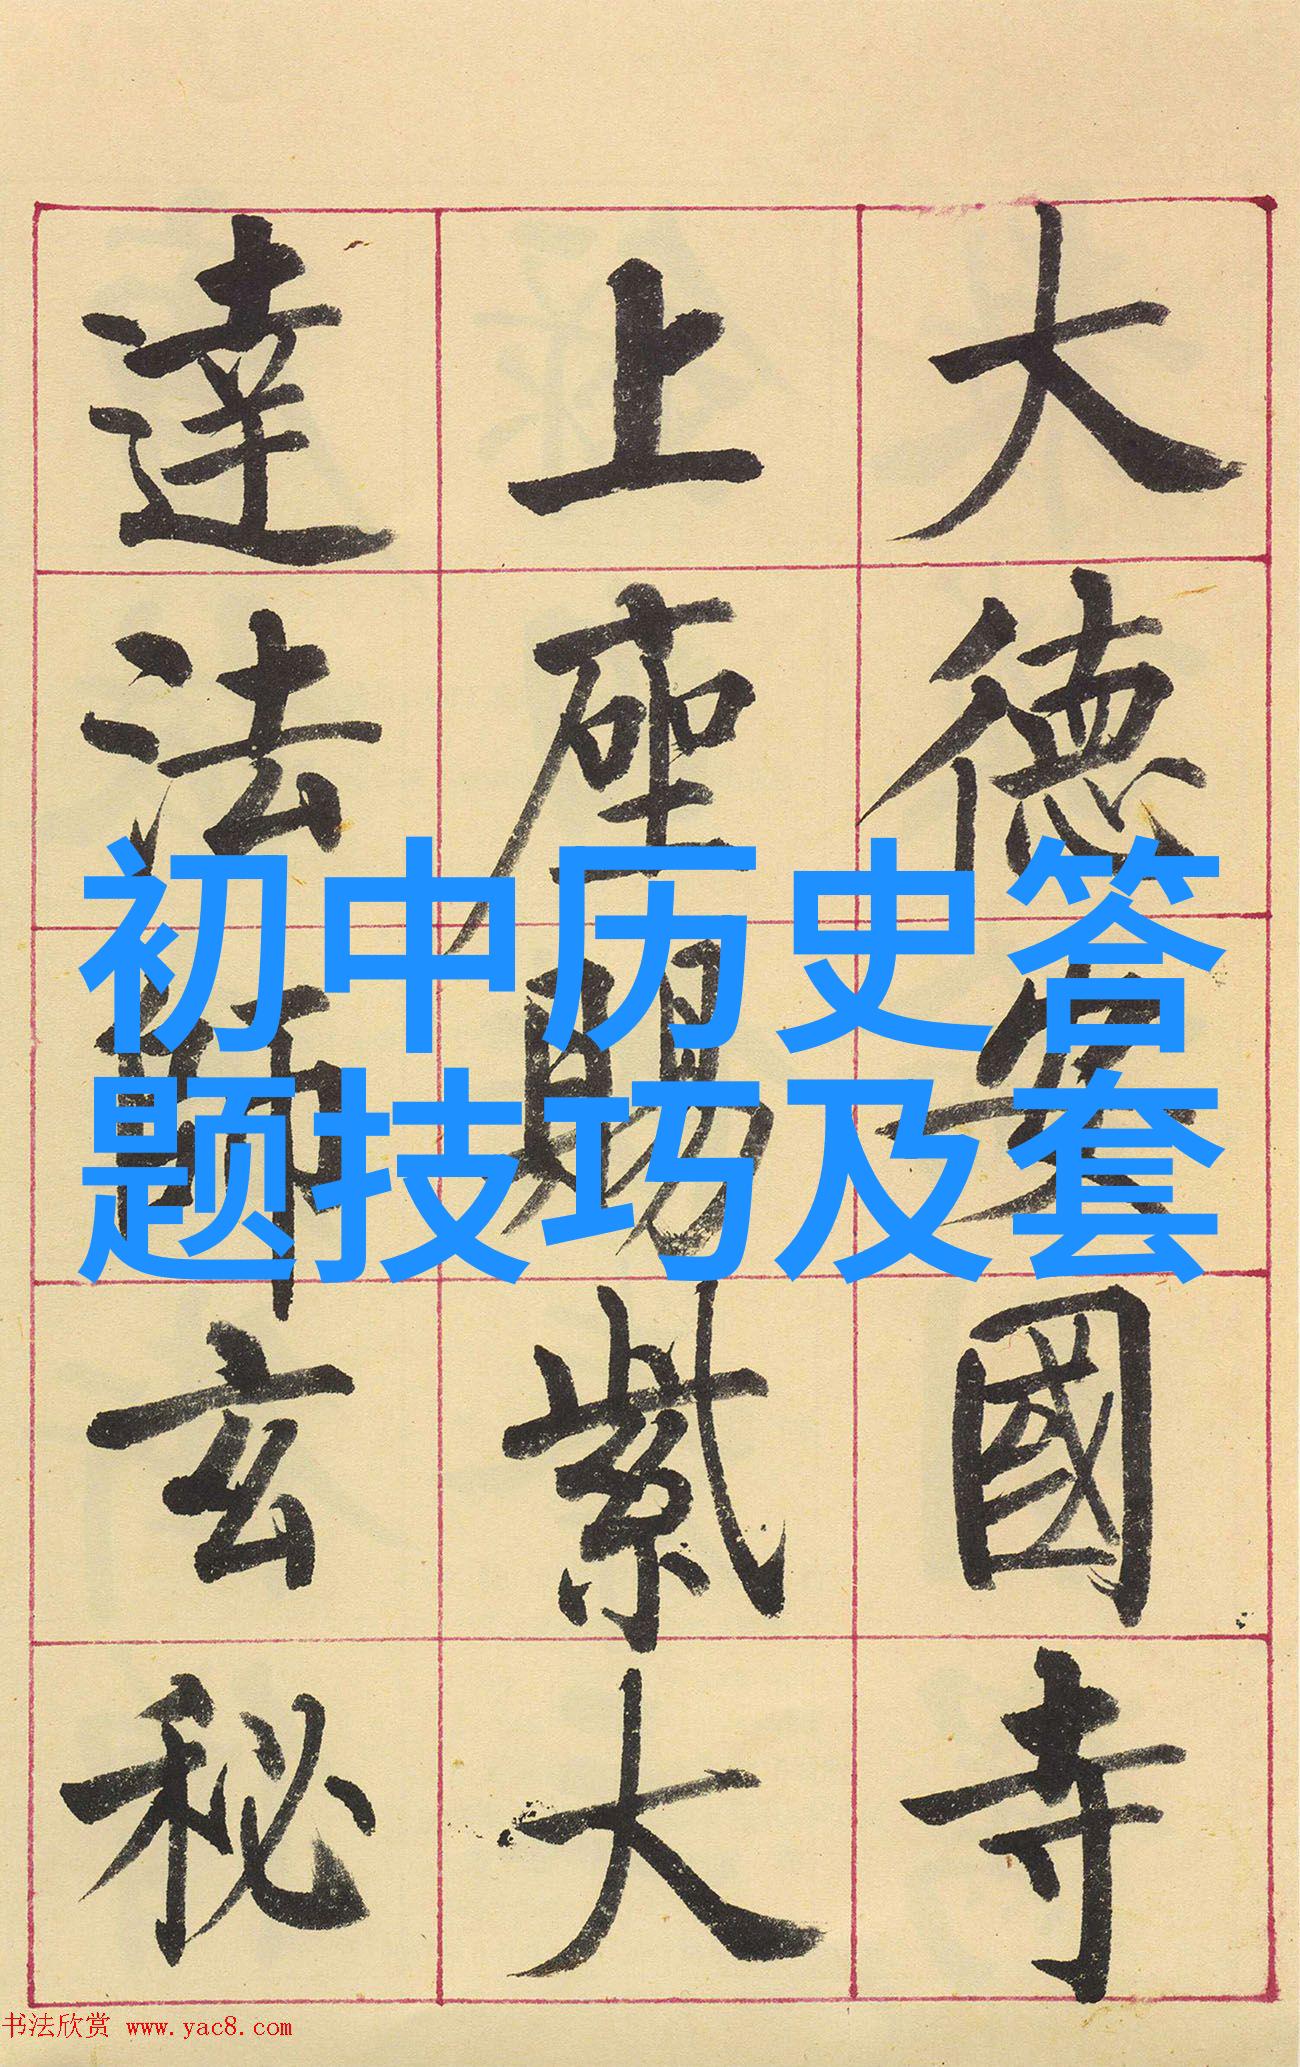 大德安國寺
上座賜紫大
達法師玄秘
初中历史答
题技巧及套
书法欣赏 www.yac8.com